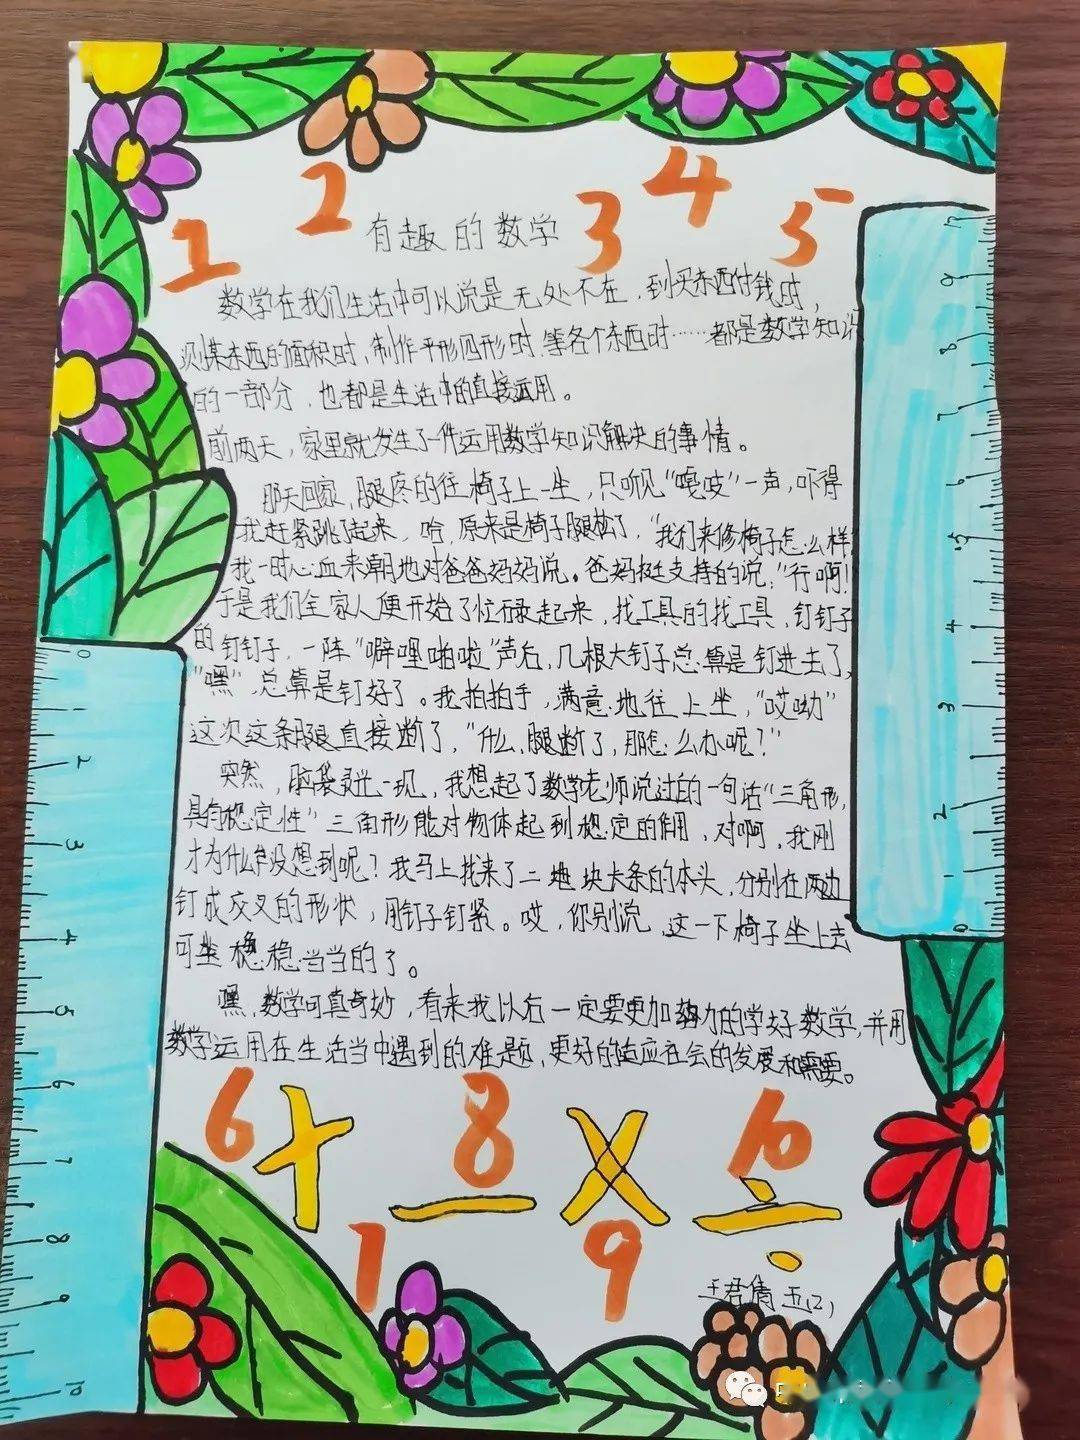 1 2 3 4 5
有趣的数学
数学在我们生活中可以说是无处不在，到买东西付钱时，
测某东西的面积时，制作平形四形时，等各个东西时……都是数学知识
的一部分，也都是生活中的直接运用。
前两天，家里就发生了一件运用数学知识解决的事情。
那天回家，腿疼的往椅子上一坐，只听见“嘎吱”一声，吓得
我赶紧跳了起来，哈，原来是椅子腿松了，“我们来修椅子怎么样”
我一时心血来潮地对爸爸妈妈说。爸妈挺支持的说：“行啊！
于是我们全家人便开始了忙碌起来，找工具的找工具，钉钉子
的钉钉子，一阵“噼哩啪啦”声后，几根大钉子总算是钉进去了，
“嘿”，总算是钉好了。我拍拍手，满意地往上坐，“哎呦”
这次这条腿直接断了，“什么，腿断了，那怎么办呢？”
突然，脑袋灵光一现，我想起了数学老师说过的一句话“三角形，
具有稳定性”三角形能对物体起到稳定的作用，对啊，我刚
才为什么没想到呢？我马上找来了二块大条的木头，分别在两边
钉成交叉的形状，用钉子钉紧。哎，你别说，这一下椅子坐上去
可坐稳稳当当的了。
嘿，数学可真奇妙，看来我以后一定要更加努力的学好数学，并用
数学运用在生活当中遇到的难题，更好的适应社会的发展和需要。
6 + 8 × 10
7 − 9 ÷
王君倩 五(2)
0 1 2 3 4 5 6 7 8 9 10
7 6 5 4 3 2 1 0